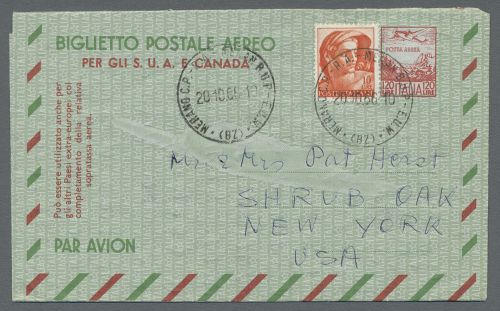 BIGLIETTO POSTALE AEREO
PER GLI S. U. A. E CANADÀ
Può essere utilizzato anche per
gli altri Paesi extra-europei col
completamento della relativa
soprattassa aerea.
PAR AVION
POSTA AEREA
120 ITALIA 120
LIRE LIRE
MERANO C.P.
(BZ)
20.10.66.10
MERANO C.P.
(BZ)
20.10.66.10
Mr. & Mrs Pat Herst
SHRUB OAK
NEW YORK
USA